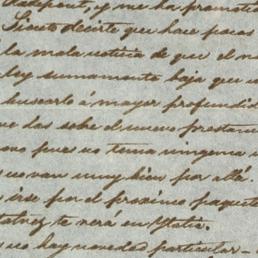 y me ha prometid
Siento decirte que hace pocos
la mala noticia de que el
ley sumamente baja que
buscarlo á mayor profundid
das sobre el nuevo
pues no tenia ninguna
van muy bien por allá.
irse por el proximo paquete
te verá en
no hay novedad particular